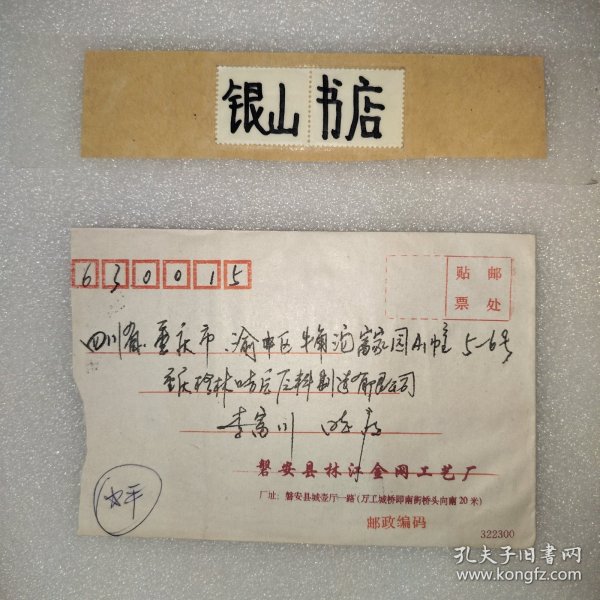 银山 书店
630015
贴 邮
票 处
四川省重庆市渝中区牛角沱富家园 5-6号
重庆 制造有限公司
李富川
磐安县林江金网工艺厂
厂址:磐安县城壶厅一路(万工城桥即南街桥头向南20米)
邮政编码
322300
孔夫子旧书网
www.kongfz.com